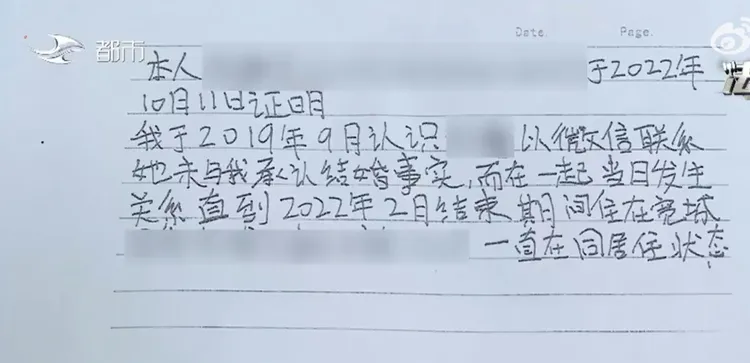 Date. Page.
都市
本人 于2022年
10月11日证明
我于2019年9月认识 以微信联系
她未与我承认结婚事实,而在一起当日发生
关系直到2022年2月结束期间住在宽城
一直在同居住状态